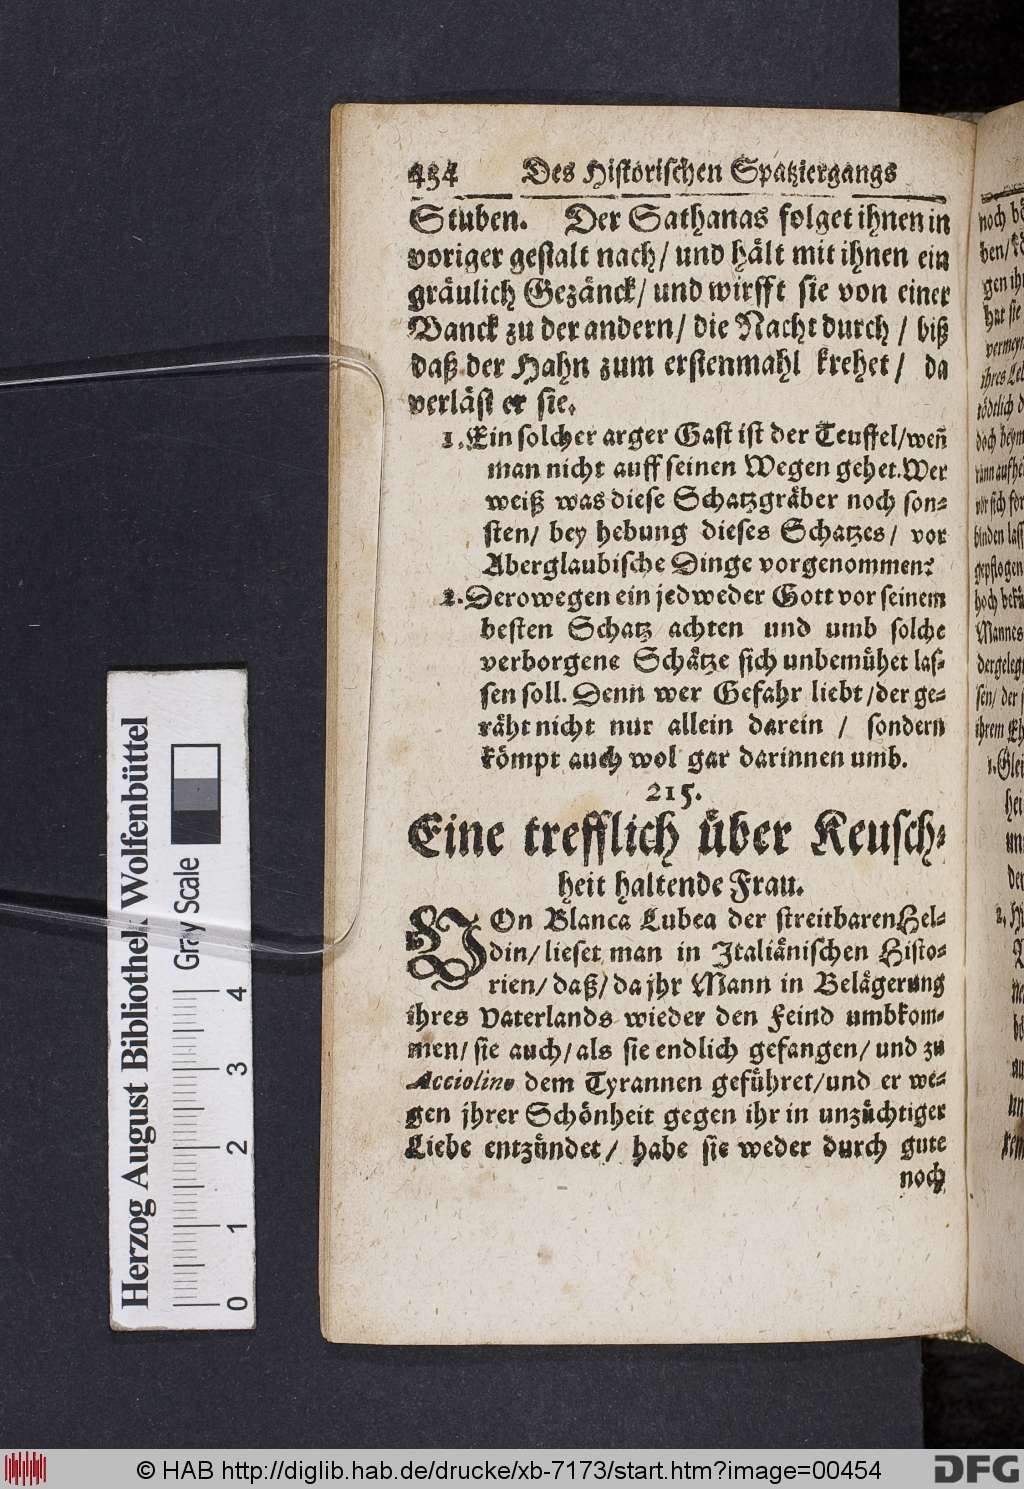 434 Des Historischen Spatziergangs
Stuben. Der Sathanas folget ihnen in
voriger gestalt nach/ und hält mit ihnen ein
gräulich Gezänck/ und wirfft sie von einer
Banck zu der andern/ die Nacht durch / biß
daß der Hahn zum erstenmahl krehet/ da
verläst er sie.
1. Ein solcher arger Gast ist der Teuffel/ weñ
man nicht auff seinen Wegen gehet. Wer
weiß was diese Schatzgräber noch son-
sten/ bey hebung dieses Schatzes/ vor
Aberglaubische Dinge vorgenommen?
2. Derowegen ein jedweder Gott vor seinem
besten Schatz achten und umb solche
verborgene Schätze sich unbemühet las-
sen soll. Denn wer Gefahr liebt/ der ge-
räht nicht nur allein darein / sondern
kömpt auch wol gar darinnen umb.
215.
Eine trefflich über Keusch-
heit haltende Frau.
VOn Blanca Lubea der streitbaren Hel-
din/ lieset man in Italiänischen Histo-
rien/ daß/ da jhr Mann in Belägerung
ihres Vaterlands wieder den Feind umbkom-
men/ sie auch/ als sie endlich gefangen/ und zu
Acciolino dem Tyrannen geführet/ und er we-
gen jhrer Schönheit gegen ihr in unzüchtiger
Liebe entzündet/ habe sie weder durch gute
noch
Herzog August Bibliothek Wolfenbüttel
Gray Scale
0 1 2 3 4
© HAB http://diglib.hab.de/drucke/xb-7173/start.htm?image=00454
DFG